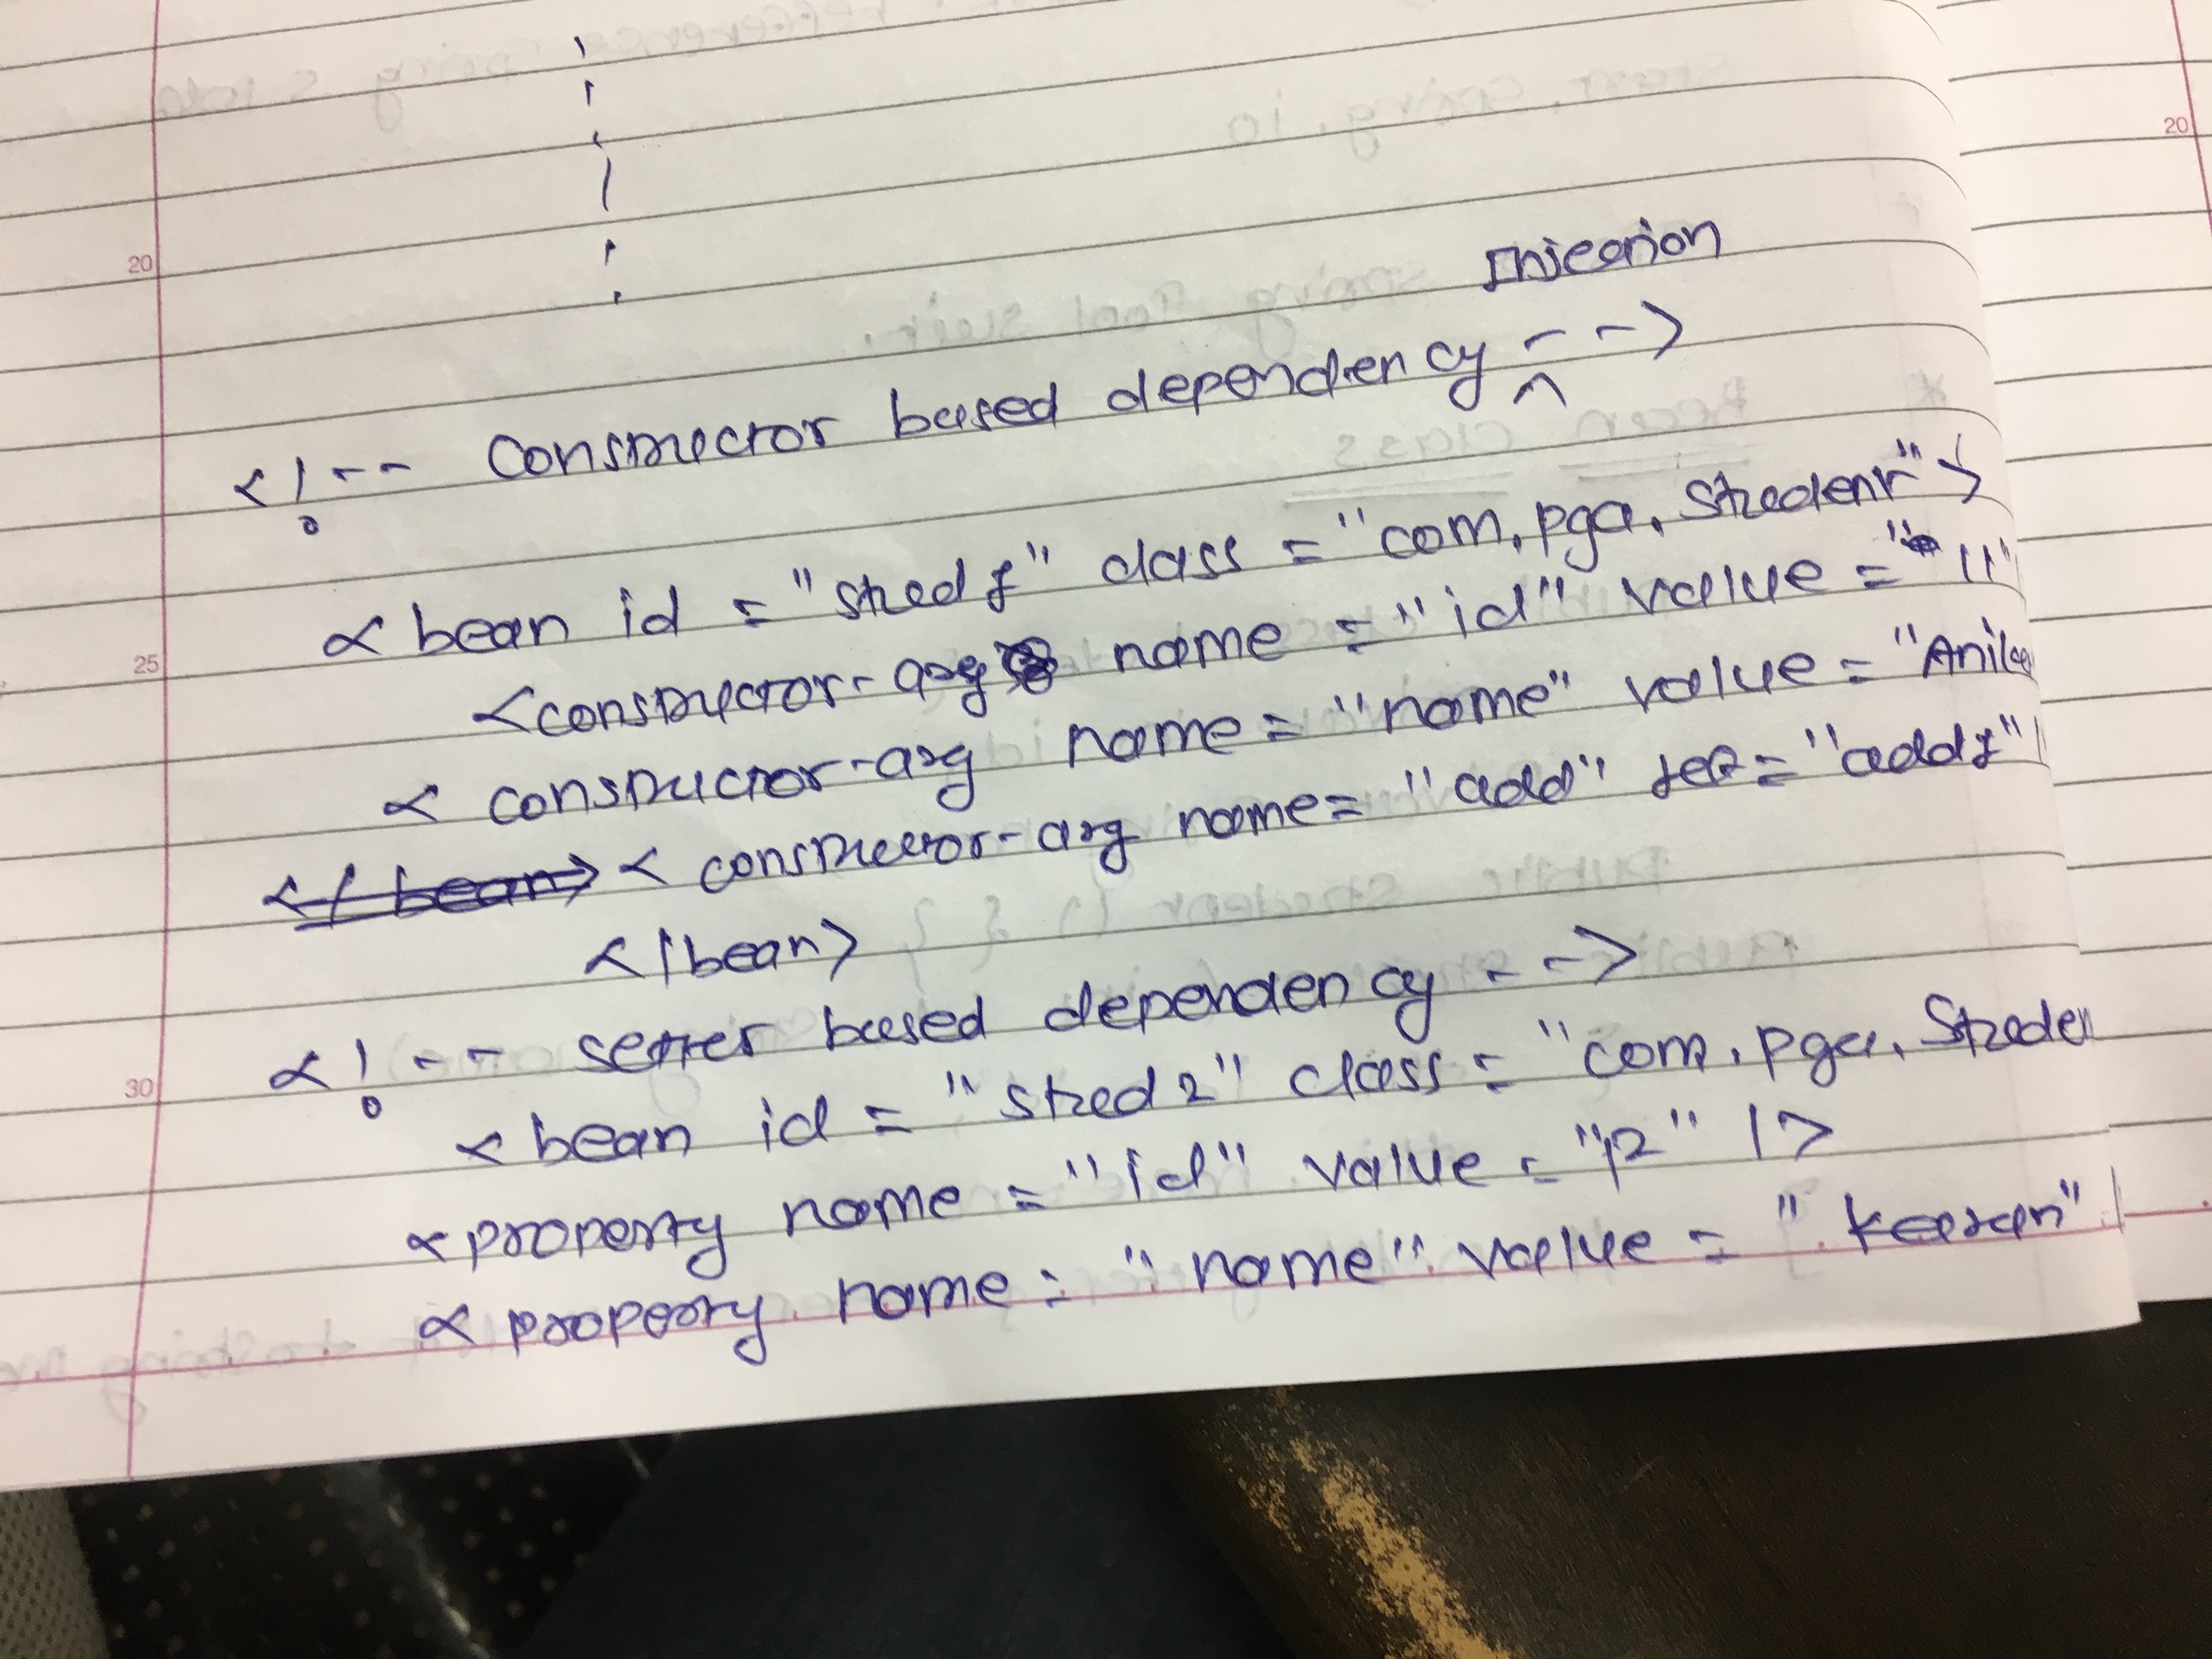 Injection
<!-- Constructor based dependency ^ -->
<bean id = "stud1" class = "com.pga.Student">
<constructor-arg name = "id" value = "11"
<constructor-arg name = "name" value = "Anil"
</bean> <constructor-arg name = "add" ref = "add1" /
</bean>
<!-- setter based dependency -->
<bean id = "stud2" class = "com.pga.Studen
<property name = "id" value = "12" />
<property name = "name" value = "Karan" /
20
25
30
20